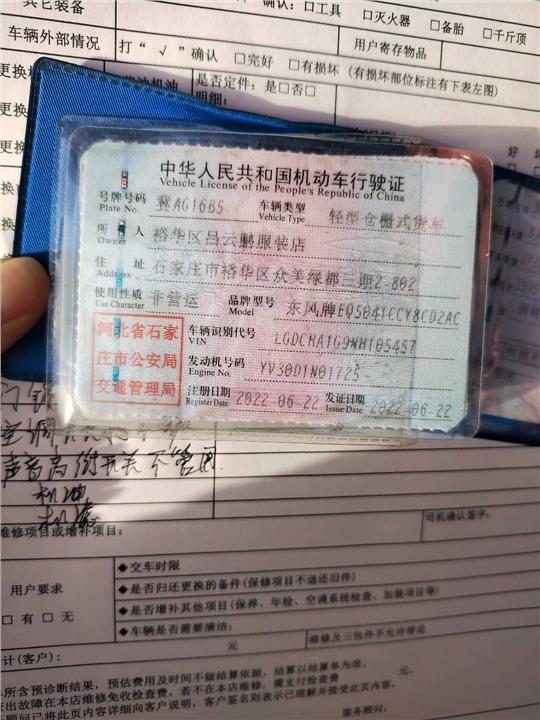 其它装备
确认：□工具 □灭火器 □备胎 □千斤顶
车辆外部情况 打“√”确认 □完好 □有损坏（有损坏部位标注有下表左图）
用户寄存物品
更换
机油
是否定件：是□否□
明细：
更换
更换
中华人民共和国机动车行驶证
Vehicle License of the People's Republic of China
号牌号码 冀AG16B5 车辆类型 轻型仓栅式货车
Plate No. Vehicle Type
所有人 裕华区吕云鹏服装店
Owner
住址 石家庄市裕华区众美绿都三期2-802
Address
使用性质 非营运 品牌型号 东风牌EQ5041CCY8CD2AC
Use Character Model
河北省石家
庄市公安局
交通管理局
车辆识别代号 LGDCHA1G9NH105457
VIN
发动机号码 YV30D1N01725
Engine No.
注册日期 2022-06-22 发证日期 2022-06-22
Register Date Issue Date
空调
声音高 开关不管用
机油
维修项目或增补项目：
司机确认签字：
用户要求
□有 □无
◆交车时限
◆是否归还更换的备件（保修项目不退还旧件）
◆是否增补其他项目（保养、年检、空调系统检查、加装项目等）
◆车辆是否需要清洁：
计（客户）： 元 维修及三包件不允许带走
所含预诊断结果，预估费用及时间不做结算依据，结算以结算单为准。
出故障在本店维修免收检查费，若不在本店维修，需支付检查费 元。
顾问已将此页内容详细向客户说明，客户签名则表示已理解并接受此页内容。
服务顾问：